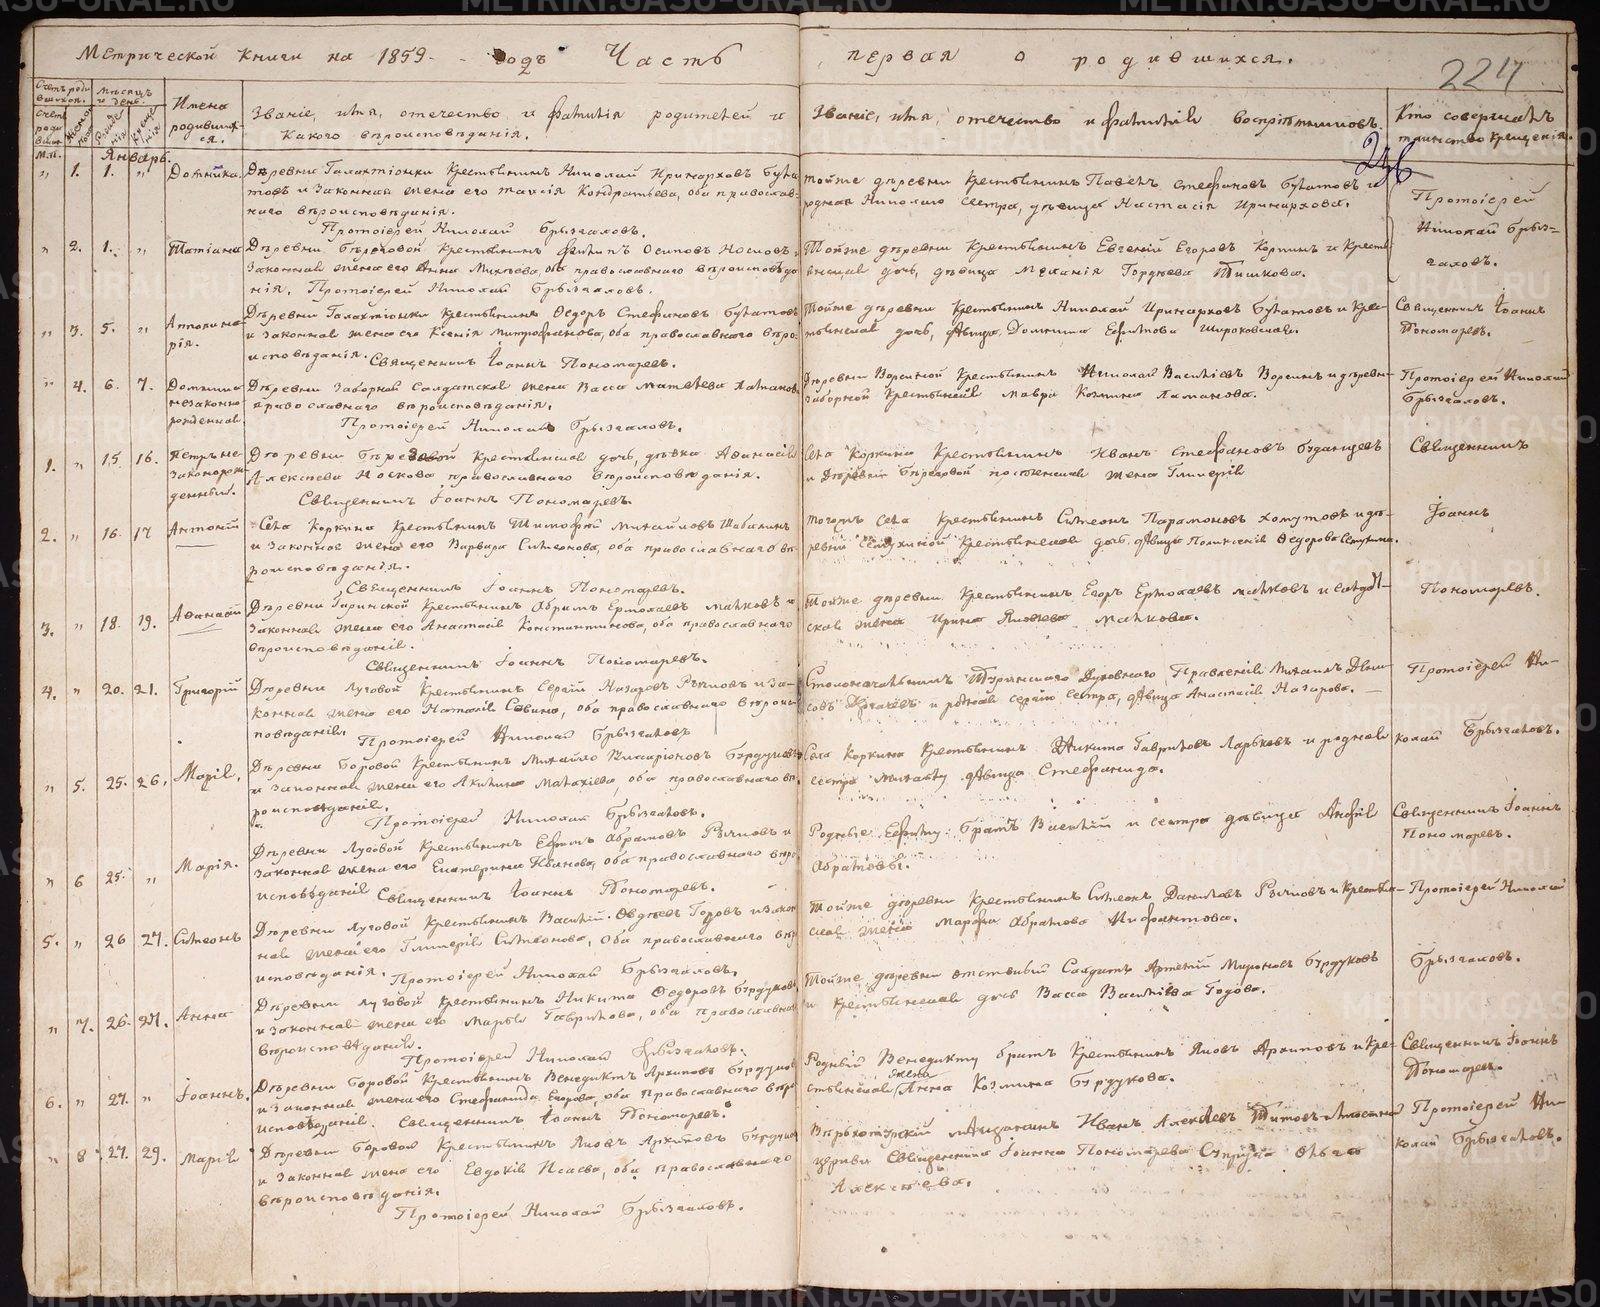 Метрической книги на 1859. - годъ Часть первая о родившихся.
224
Счетъ родившихся.
Мѣсяцъ и день.
Имена родившихся.
Званіе, имя, отечество и фамилія родителей и какого вѣроисповѣданія.
Званіе, имя, отечество и фамилія воспріемниковъ.
Кто совершалъ таинство крещенія.
Январь.
" 1. 1. " Домника.
Деревни Галактіонки Крестьянинъ Николай Иринарховъ
и законная жена его Таисія Кондратьева, оба православнаго вѣроисповѣданія.
Протоіерей Николай Брызгаловъ.
тойже деревни Крестьянинъ Павелъ Стефановъ и
родная Николаю сестра, дѣвица Настасія Иринархова.
Протоіерей
Николай Брызгаловъ.
" 2. 1. " Татіана
Деревни Береговой Крестьянинъ Филипъ Осиповъ Носковъ
законная жена его Анна Михѣева, оба православнаго вѣроисповѣданія. Протоіерей Николай Брызгаловъ.
Тойже деревни Крестьянинъ Евгеній Егоровъ Коркинъ и Крестьянская дочь, дѣвица Меланія Гордѣева Тишкова.
" 3. 5. " Аполинарія.
Деревни Галактіонки Крестьянинъ Ѳедоръ Стефановъ
и законная жена его Ксенія Митрофанова, оба православнаго вѣроисповѣданія. Священникъ Іоаннъ Пономаревъ.
Тойже деревни Крестьянинъ Николай Иринарховъ и Крестьянская дочь, дѣвица Домника Ефимова Широковская.
Священникъ Іоаннъ Пономаревъ.
" 4. 6. 7. Домника незаконнорожденная.
Деревни Заборной Солдатская жена Васса Матвѣева
православнаго вѣроисповѣданія.
Протоіерей Николай Брызгаловъ.
Деревни Ворсиной Крестьянинъ Николай Васильевъ Ворсинъ и деревни
Заборной Крестьянская Мавра Козмина
Протоіерей Николай Брызгаловъ.
1. " 15. 16. Петръ незаконорожденный.
Деревни Береговой Крестьянская дочь, дѣвка Аѳанасія
Алексѣева Носкова православнаго вѣроисповѣданія.
Священникъ Іоаннъ Пономаревъ
Села Коркина Крестьянинъ Иванъ Стефановъ
и Деревни Береговой жена Гликерія
Священникъ
2. " 16. 17 Антоній
Села Коркина Крестьянинъ Тимофей Михайловъ
и законная жена его Варвара Симеонова, оба православнаго вѣроисповѣданія.
Священникъ Іоаннъ Пономаревъ.
тогожъ села Крестьянинъ Симеонъ Парамоновъ Хомутовъ и деревни Семухиной Крестьянская дочь, дѣвица Поликсенія Ѳедорова Семухина.
Іоаннъ
3. " 18. 19. Аѳанасій
Деревни Гаринской Крестьянинъ Абрамъ Ермолаевъ Мальковъ и
законная жена его Анастасія Константинова, оба православнаго
вѣроисповѣданія.
Священникъ Іоаннъ Пономаревъ.
Тойже деревни Крестьянинъ Егоръ Ермолаевъ Мальковъ и солдатская жена Ирина Яковлева Малькова.
Пономаревъ.
4. " 20. 21. Григорій
Деревни Луговой Крестьянинъ Сергій Назаровъ Рычковъ и законная жена его Наталія Савина, оба православнаго вѣроисповѣданія. Протоіерей Николай Брызгаловъ
Столоначальникъ Туринскаго Духовнаго Правленія Михаилъ
и родная Сергію сестра, дѣвица Анастасія Назарова.
Протоіерей Николай Брызгаловъ.
" 5. 25. 26. Марія.
Деревни Боровой Крестьянинъ Михайло Илларіоновъ Бурдуковъ
и законная жена его Акилина Малахіева, оба православнаго вѣроисповѣданія.
Протоіерей Николай Брызгаловъ.
Села Коркина Крестьянинъ Никита Гавриловъ Ларьковъ и родная
сестра Михаилу дѣвица Стефанида.
" 6 25. " Марія.
Деревни Луговой Крестьянинъ Ефимъ Абрамовъ Рычковъ и
законная жена его Екатерина Иванова, оба православнаго вѣроисповѣданія Священникъ Іоаннъ Пономаревъ.
Родные Ефиму: братъ Василій и сестра дѣвица
Абрамовы.
Священникъ Іоаннъ Пономаревъ.
5. " 26 27. Симеонъ
Деревни Луговой Крестьянинъ Василій и законная жена его Гликерія Симеонова, оба православнаго вѣроисповѣданія. Протоіерей Николай Брызгаловъ.
Тойже деревни Крестьянинъ Симеонъ Даниловъ Рычковъ и Крестьянская жена Марфа Абрамова
Протоіерей Николай Брызгаловъ.
" 7. 26. 27. Анна
Деревни Луговой Крестьянинъ Никита Ѳедоровъ Бурдуковъ
и законная жена его Марья Гаврилова, оба православнаго
вѣроисповѣданія.
Протоіерей Николай Брызгаловъ.
Тойже деревни отставный Солдатъ Артемій Мироновъ Бурдуковъ
и крестьянская дочь Васса Васильева
6. " 27. " Іоаннъ.
Деревни Боровой Крестьянинъ Венедиктъ Архиповъ Бурдуковъ
и законная жена его Стефанида Егорова, оба православнаго вѣроисповѣданія. Священникъ Іоаннъ Пономаревъ.
Родный Венедикту братъ Крестьянинъ Яковъ Архиповъ и Крестьянская жена Анна Козмина Бурдукова.
Священникъ Іоаннъ Пономаревъ.
" 8 27. 29. Марія
Деревни Боровой Крестьянинъ Яковъ Архиповъ Бурдуковъ
и законная жена его Евдокія Исаева, оба православнаго
вѣроисповѣданія.
Протоіерей Николай Брызгаловъ.
Верхотурскій мѣщанинъ Иванъ Алексѣевъ Титовъ и мѣстной
церкви Священника Іоанна Пономарева Супруга Ольга
Алексѣева.
Протоіерей Николай Брызгаловъ.
METRIKI.GASO-URAL.RU